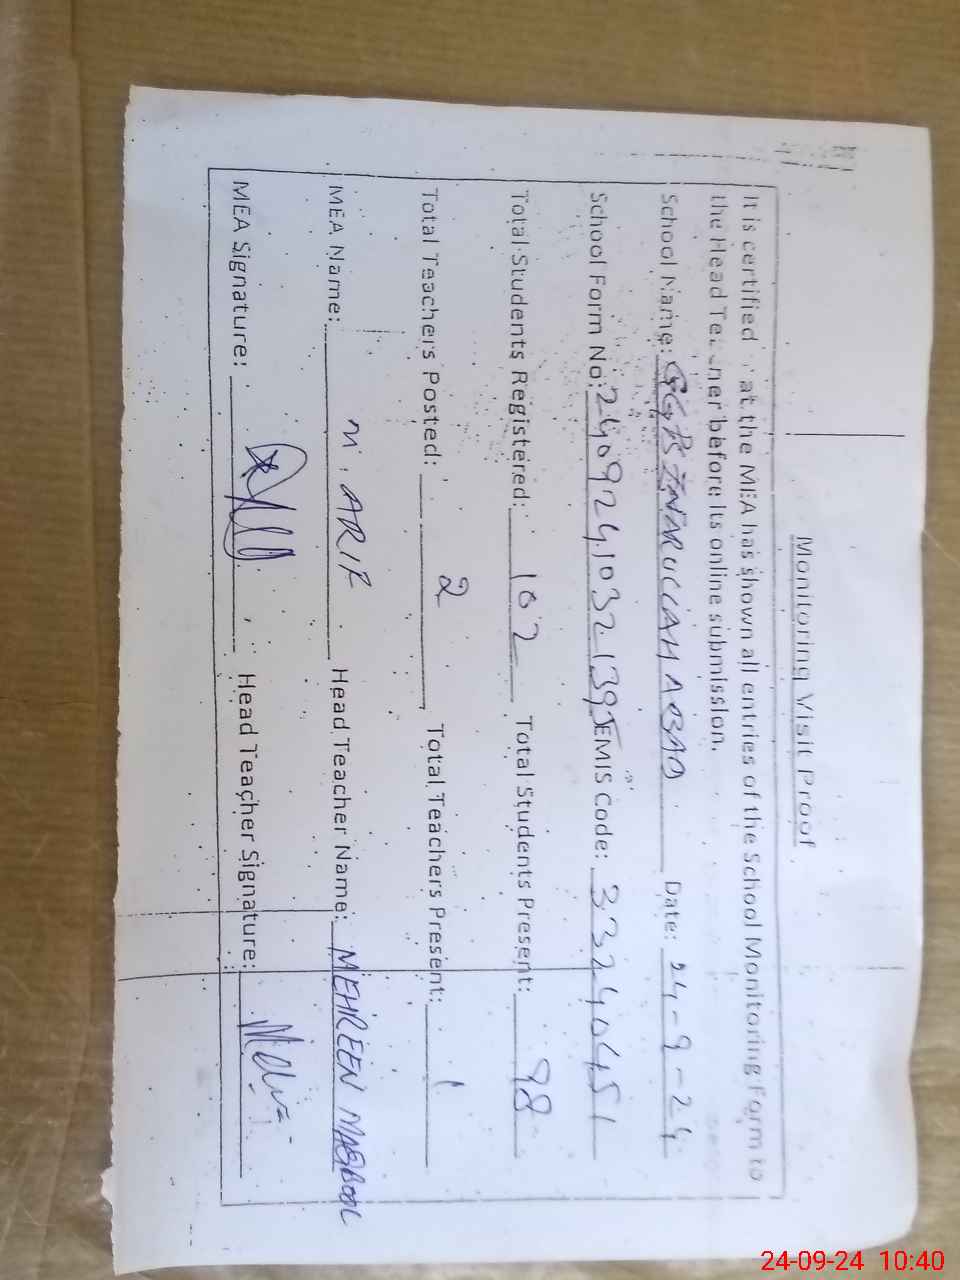 Monitoring Visit Proof
It is certified at the MEA has shown all entries of the School Monitoring Form to
the Head Te ner before its online submission.
School Name: GGPS INARULLAH ABAD Date: 24-9-24
School Form No: 240924103213 EMIS Code: 33240451
Total Students Registered: 102 Total Students Present: 98
Total Teachers Posted: 2 Total Teachers Present: 1
MEA Name: M. ARIF Head Teacher Name: MEHREEN MAQBOOL
MEA Signature: Head Teacher Signature:
24-09-24 10:40